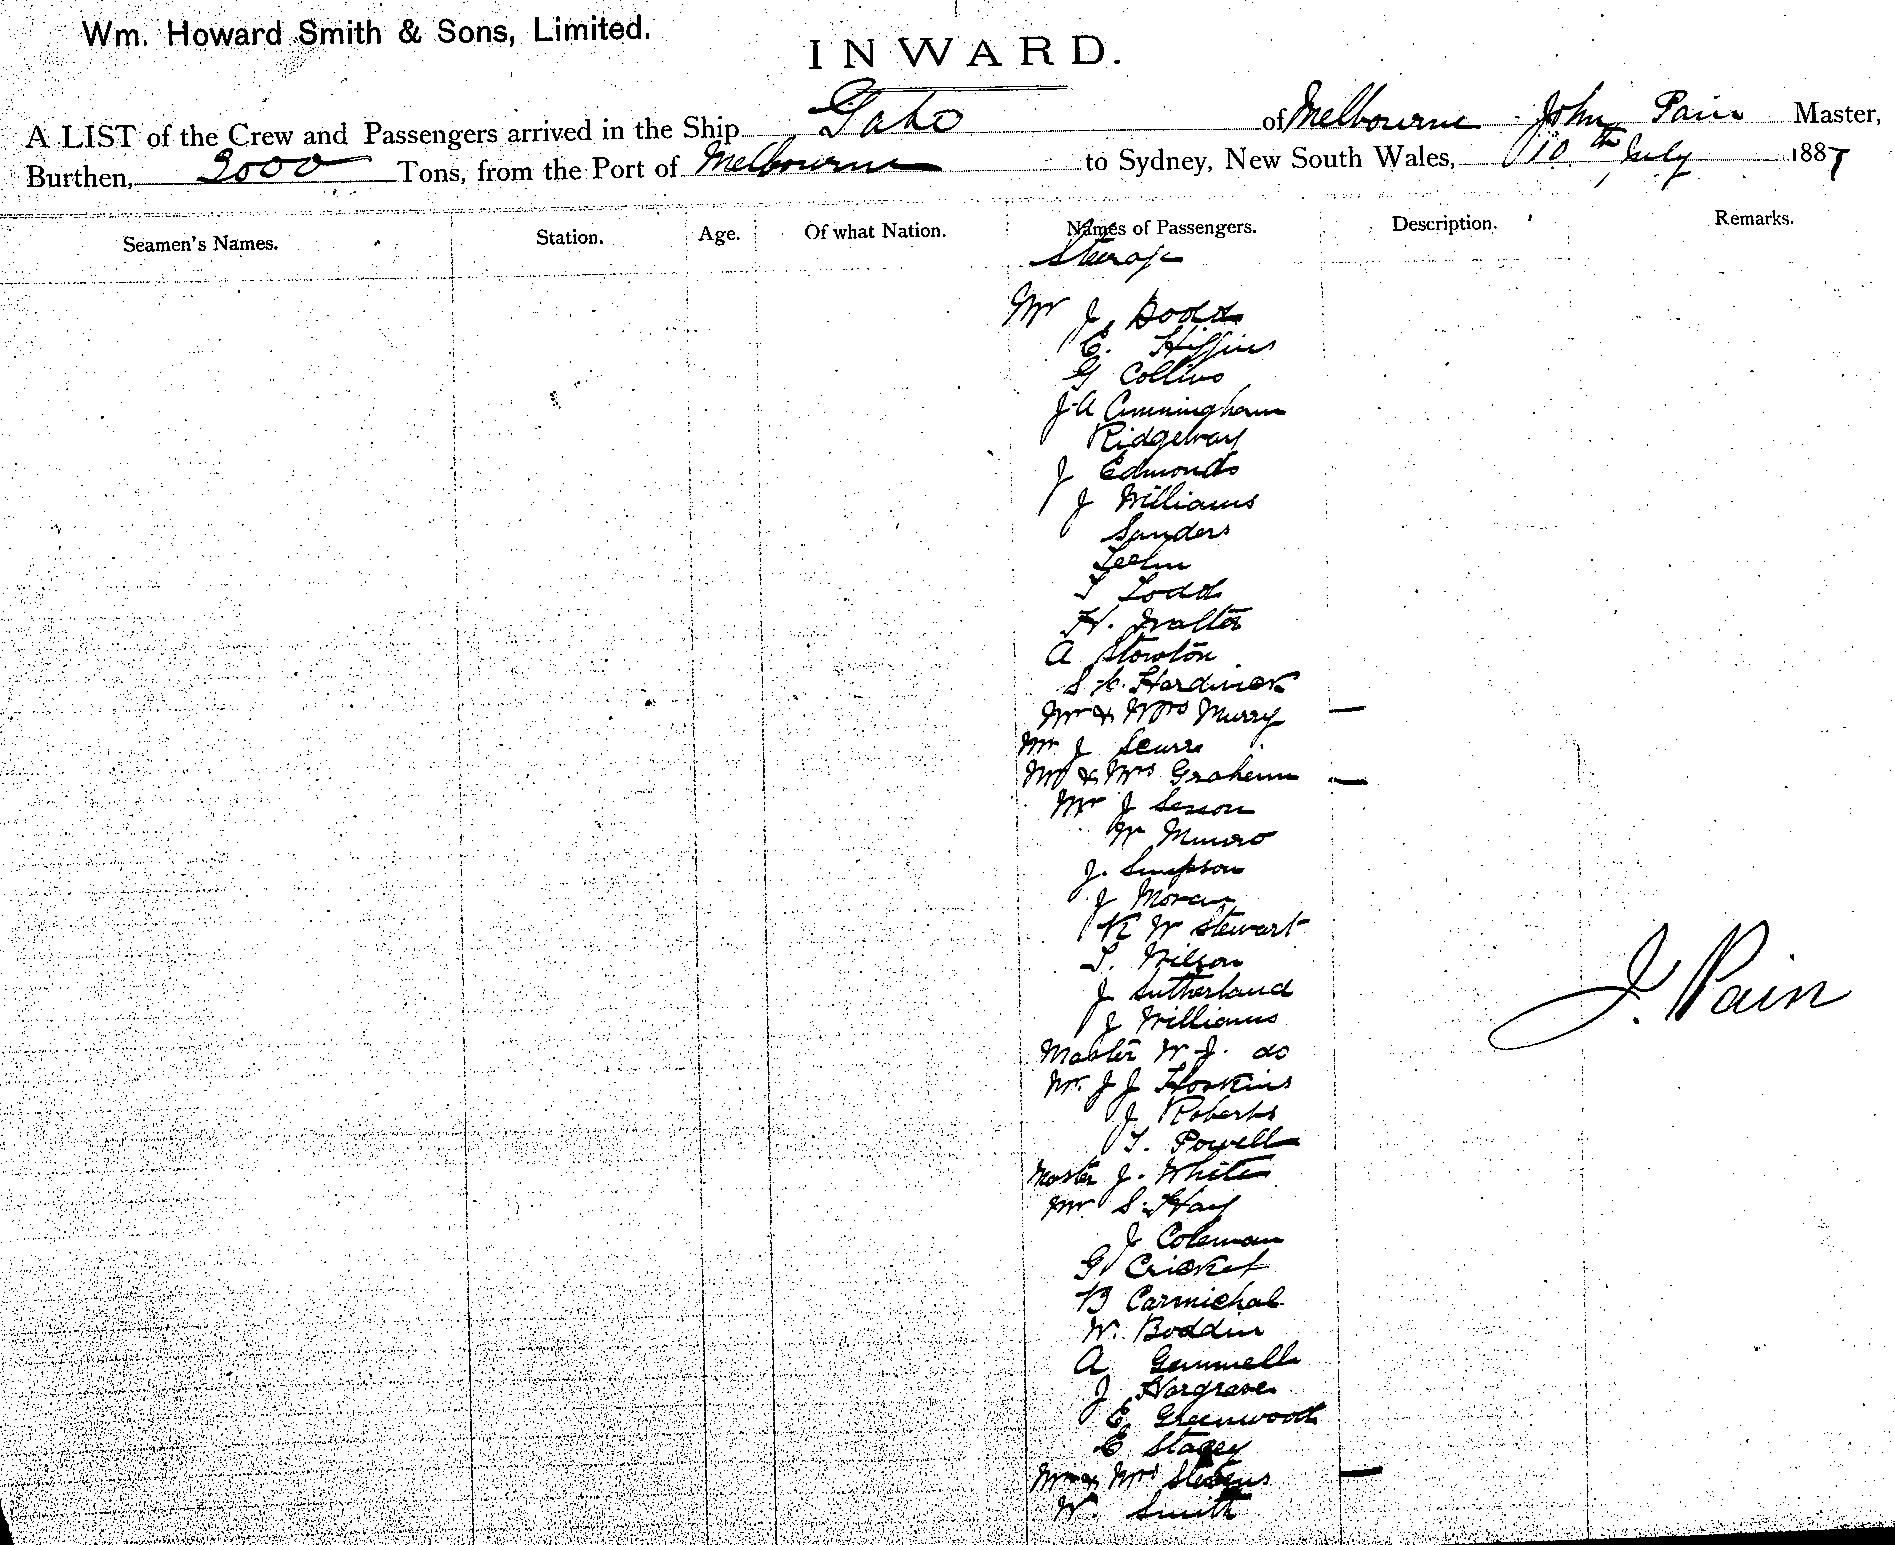 Wm. Howard Smith & Sons, Limited.
INWARD.
A LIST of the Crew and Passengers arrived in the Ship Gabo of Melbourne John Pain Master,
Burthen, 2000 Tons, from the Port of Melbourne to Sydney, New South Wales, 10th July 1887
Seamen's Names. Station. Age. Of what Nation. Names of Passengers. Description. Remarks.
Steerage
Mr J Dodd
E. Higgins
G Collins
J A Cunningham
Ridgeway
J Edmonds
J Williams
Sanders
T Todd
H. Walter
A Stowton
S H. Hardwick
Mr & Mrs Murry —
Mr J Scurr
Mr & Mrs Graham —
Mr J
W Munro
J. Simpson
J Moran
R W Stewart
T. Wilson
J Sutherland
J Williams
Master W J. do
Mr. J J Hoskins
J Roberts
T. Powell
Master J. White
Mr S. Hay
J Coleman
G Cricket
B Carmichal
W. Boddin
A Gammell
J Hargrave
E Greenwood
E Stacey
Mr & Mrs Stevens —
W. Smith
J. Pain